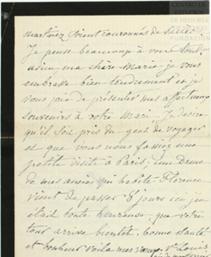 Je pense beaucoup à vous tous
ma chère Marie je vous
embrasse bien tendrement et je
vous prie de présenter mes affectueux
souvenirs à votre mari. J'espère
qu'il soit pris du goût de voyager
et que vous nous fassiez une
petite visite à Paris, une Dame
de mes amies qui habite Florence
vient de passer 8 jours ici
était toute heureuse, que votre
tour arrive bientôt, bonne santé
et bonheur voilà mes